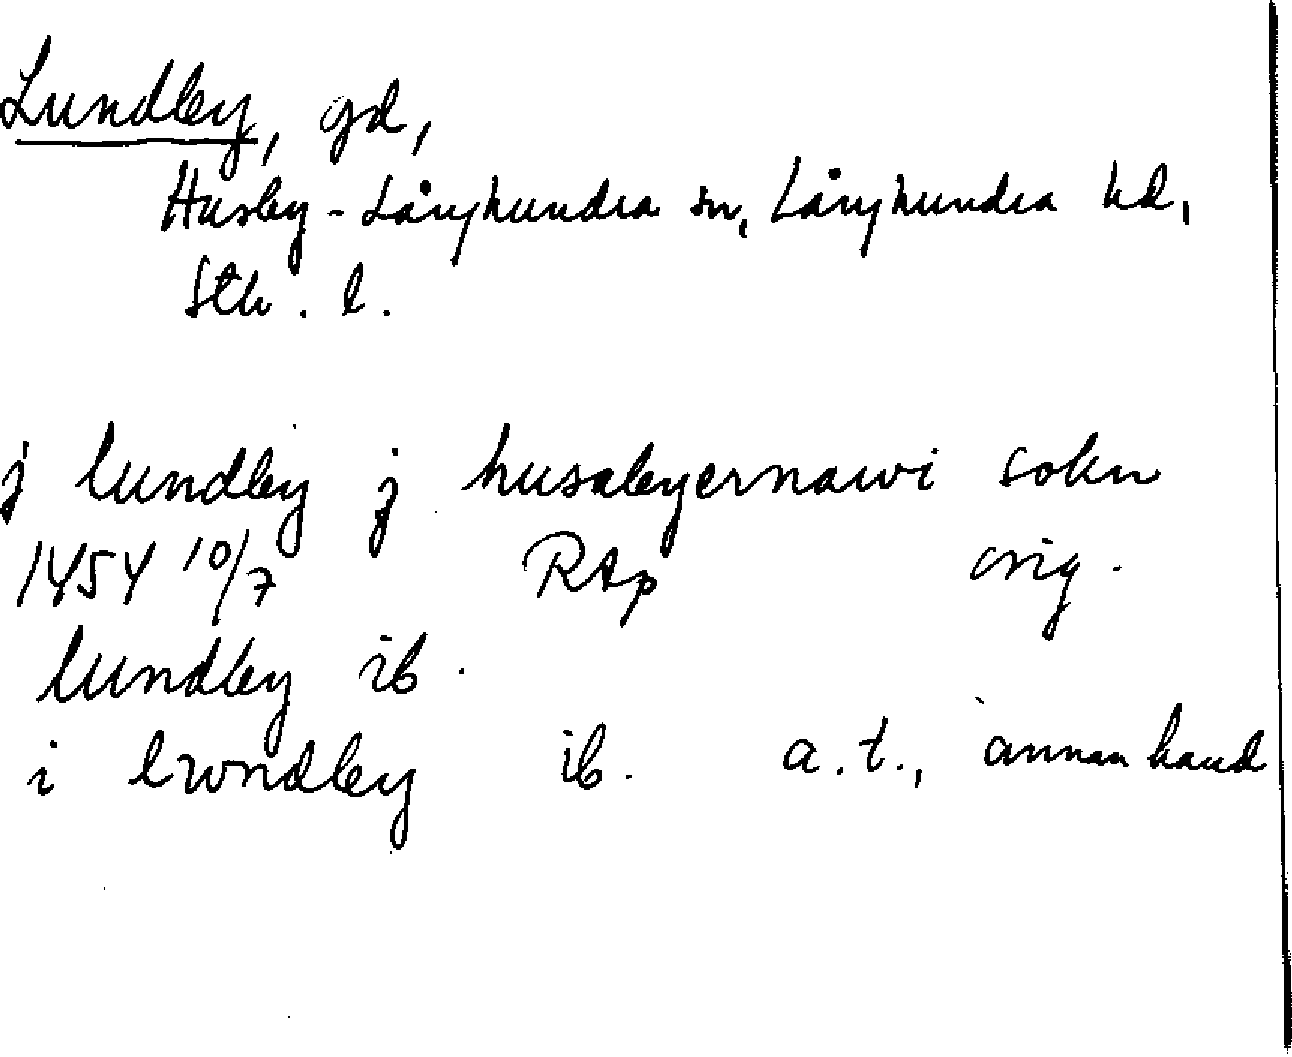 Lundby, gd,
Husby-Långhundra sn, Långhundra hd,
Sth. l.
j lundby j husabyernawi sokn
1454 10/7 RAp orig.
lundby ib.
i lwndby ib. a.t., annan hand